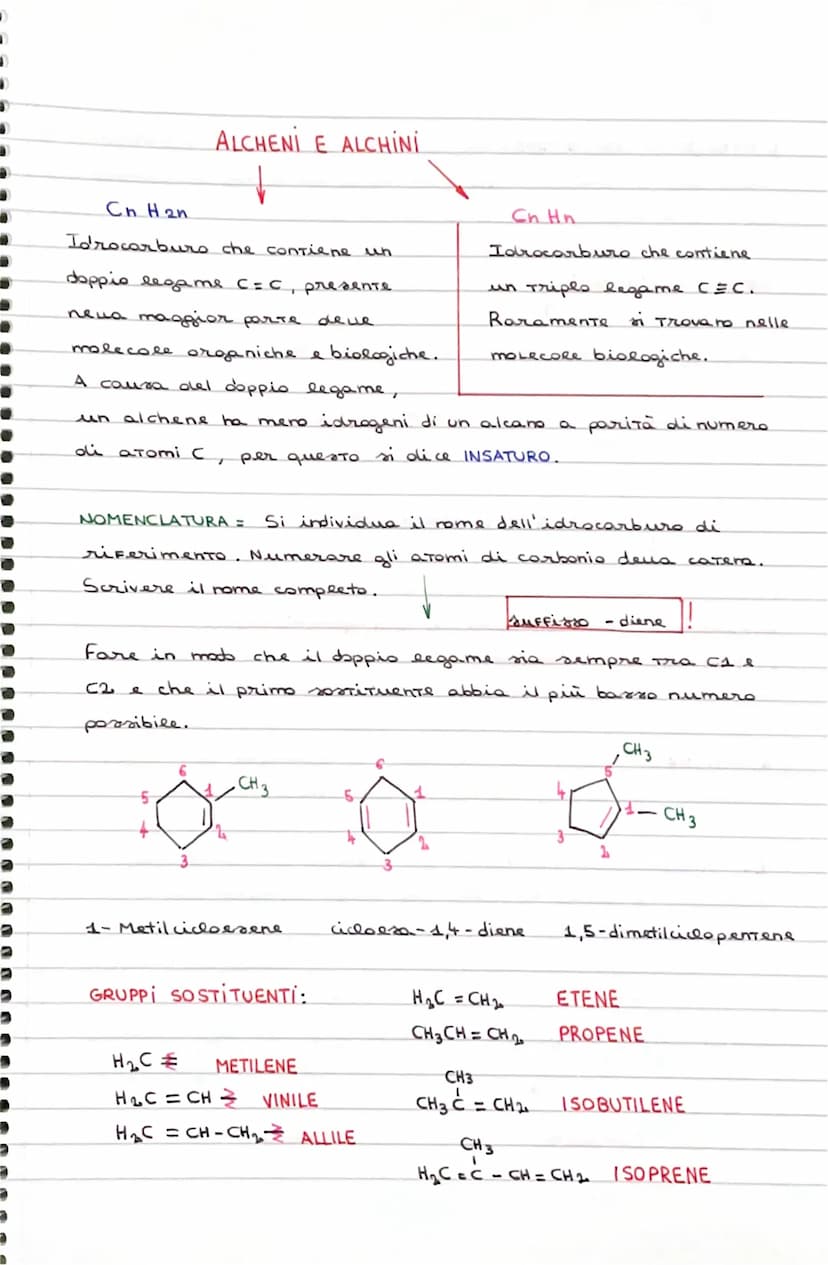 ALCHENI E ALCHINI
CnH2n
Idrocarburo che contiene un
doppio legame C=C, presente
nella maggior parte delle
molecole organiche e biologiche.
A causa del doppio legame,
CnHn
Idrocarburo che contiene
un triplo legame C≡C.
Raramente si trovano nelle
molecole biologiche.
un alchene ha meno idrogeni di un alcano a parità di numero
di atomi C, per questo si dice INSATURO.
NOMENCLATURA = Si individua il nome dell'idrocarburo di
riferimento. Numerare gli atomi di carbonio della catena.
Scrivere il nome completo.
suffisso -diene !
Fare in modo che il doppio legame sia sempre tra C1 e
C2 e che il primo sostituente abbia il più basso numero
possibile.
6 1 CH3 5 4 2 3
6 5 1 4 2 3
CH3 5 4 1 - CH3 3 2
1-Metilcicloesene cicloesa-1,4-diene 1,5-dimetilciclopentene
GRUPPI SOSTITUENTI:
H2C = METILENE
H2C = CH - VINILE
H2C = CH-CH2 - ALLILE
H2C = CH2 ETENE
CH3CH = CH2 PROPENE
CH3
CH3C = CH2 ISOBUTILENE
CH3
H2C = C - CH = CH2 ISOPRENE